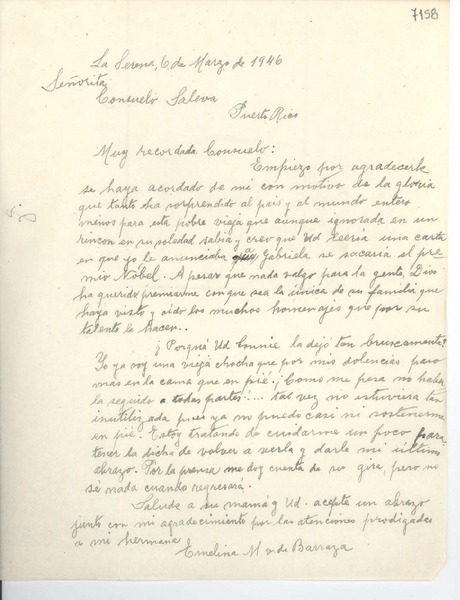 7158
La Serena, 6 de Marzo de 1946
Señorita
Consuelo Saleva
Puerto Rico
Muy recordada Consuelo:
Empiezo por agradecerle
se haya acordado de mí con motivo de la gloria
que tanto ha sorprendido al país y al mundo entero
menos para esta pobre vieja que aunque ignorada en un
rincon en su soledad sabía y creo que Ud leería una carta
en que yo le anunciaba Gabriela se sacaría el pre
mio Nobel. A pesar que nada valgo para la gente, Dios
ha querido premiarme con que sea la única de su familia que
haya visto y oido los muchos homenajes que por su
talento le hacen..
¿Porqué Ud Connie la dejó tan bruscamente?
Yo ya soy una vieja chocha que por mis dolencias paso
mas en la cama que en pié. ¡Como me pesa no haber
la seguido a todas partes!... tal vez no estuviera tan
inutilizada pues ya no puedo casi ni sostenerme
en pié. Estoy tratando de cuidarme un poco para
tener la dicha de volver a verla y darle mi último
abrazo. Por la prensa me doy cuenta de su gira, pero no
sé nada cuando regresará.
Salude a su mamá y Ud. acepte un abrazo
junto con mi agradecimiento por las atenciones prodigadas
a mi hermana
Emelina M v. de Barraza